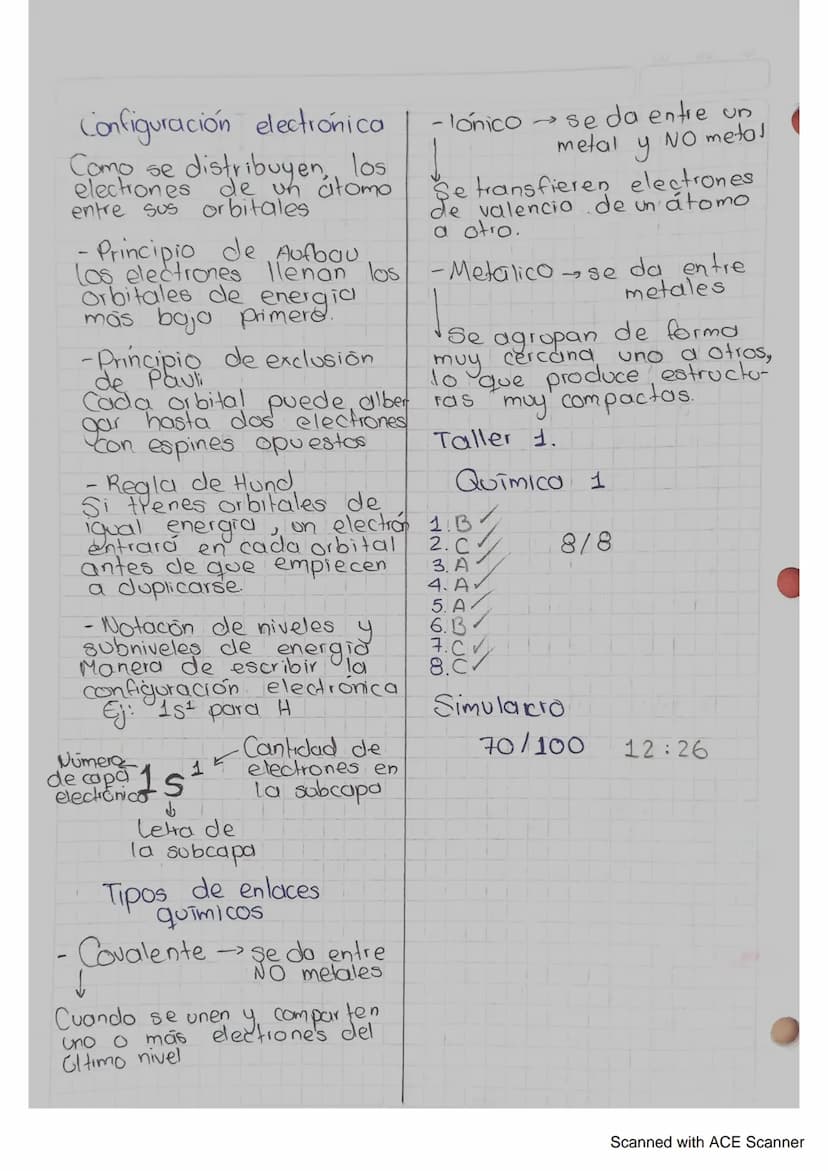 Configuración electrónica
Como se distribuyen los
electrones de un átomo
entre sus orbitales
- Principio de Aufbau
Los electrones llenan los
orbitales de energía
más bajo primero.
- Principio de exclusión
de Pauli
Cada orbital puede alber
gar hasta dos electrones
con espines opuestos
- Regla de Hund
Si tienes orbitales de
igual energía, un electrón
entrará en cada orbital
antes de que empiecen
a duplicarse.
- Notación de niveles y
subniveles de energía
Manera de escribir la
configuración electrónica
Ej: 1s¹ para H
Número
de capa
electrónica
1s¹
Cantidad de
electrones en
la subcapa
Letra de
la subcapa
Tipos de enlaces
químicos
- Covalente → se da entre
NO metales
Cuando se unen y comparten
uno o más electrones del
último nivel
- Iónico → se da entre un
metal y NO metal
Se transfieren electrones
de valencia de un átomo
a otro.
- Metálico → se da entre
metales
Se agrupan de forma
muy cercana uno a otros,
lo que produce estructu-
ras muy compactas.
Taller 1.
Química 1
1. B ✓
2. C ✓
8/8
3. A ✓
4. A ✓
5. A ✓
6. B ✓
7. C ✓
8. C ✓
Simulacro
70/100 12:26
Scanned with ACE Scanner